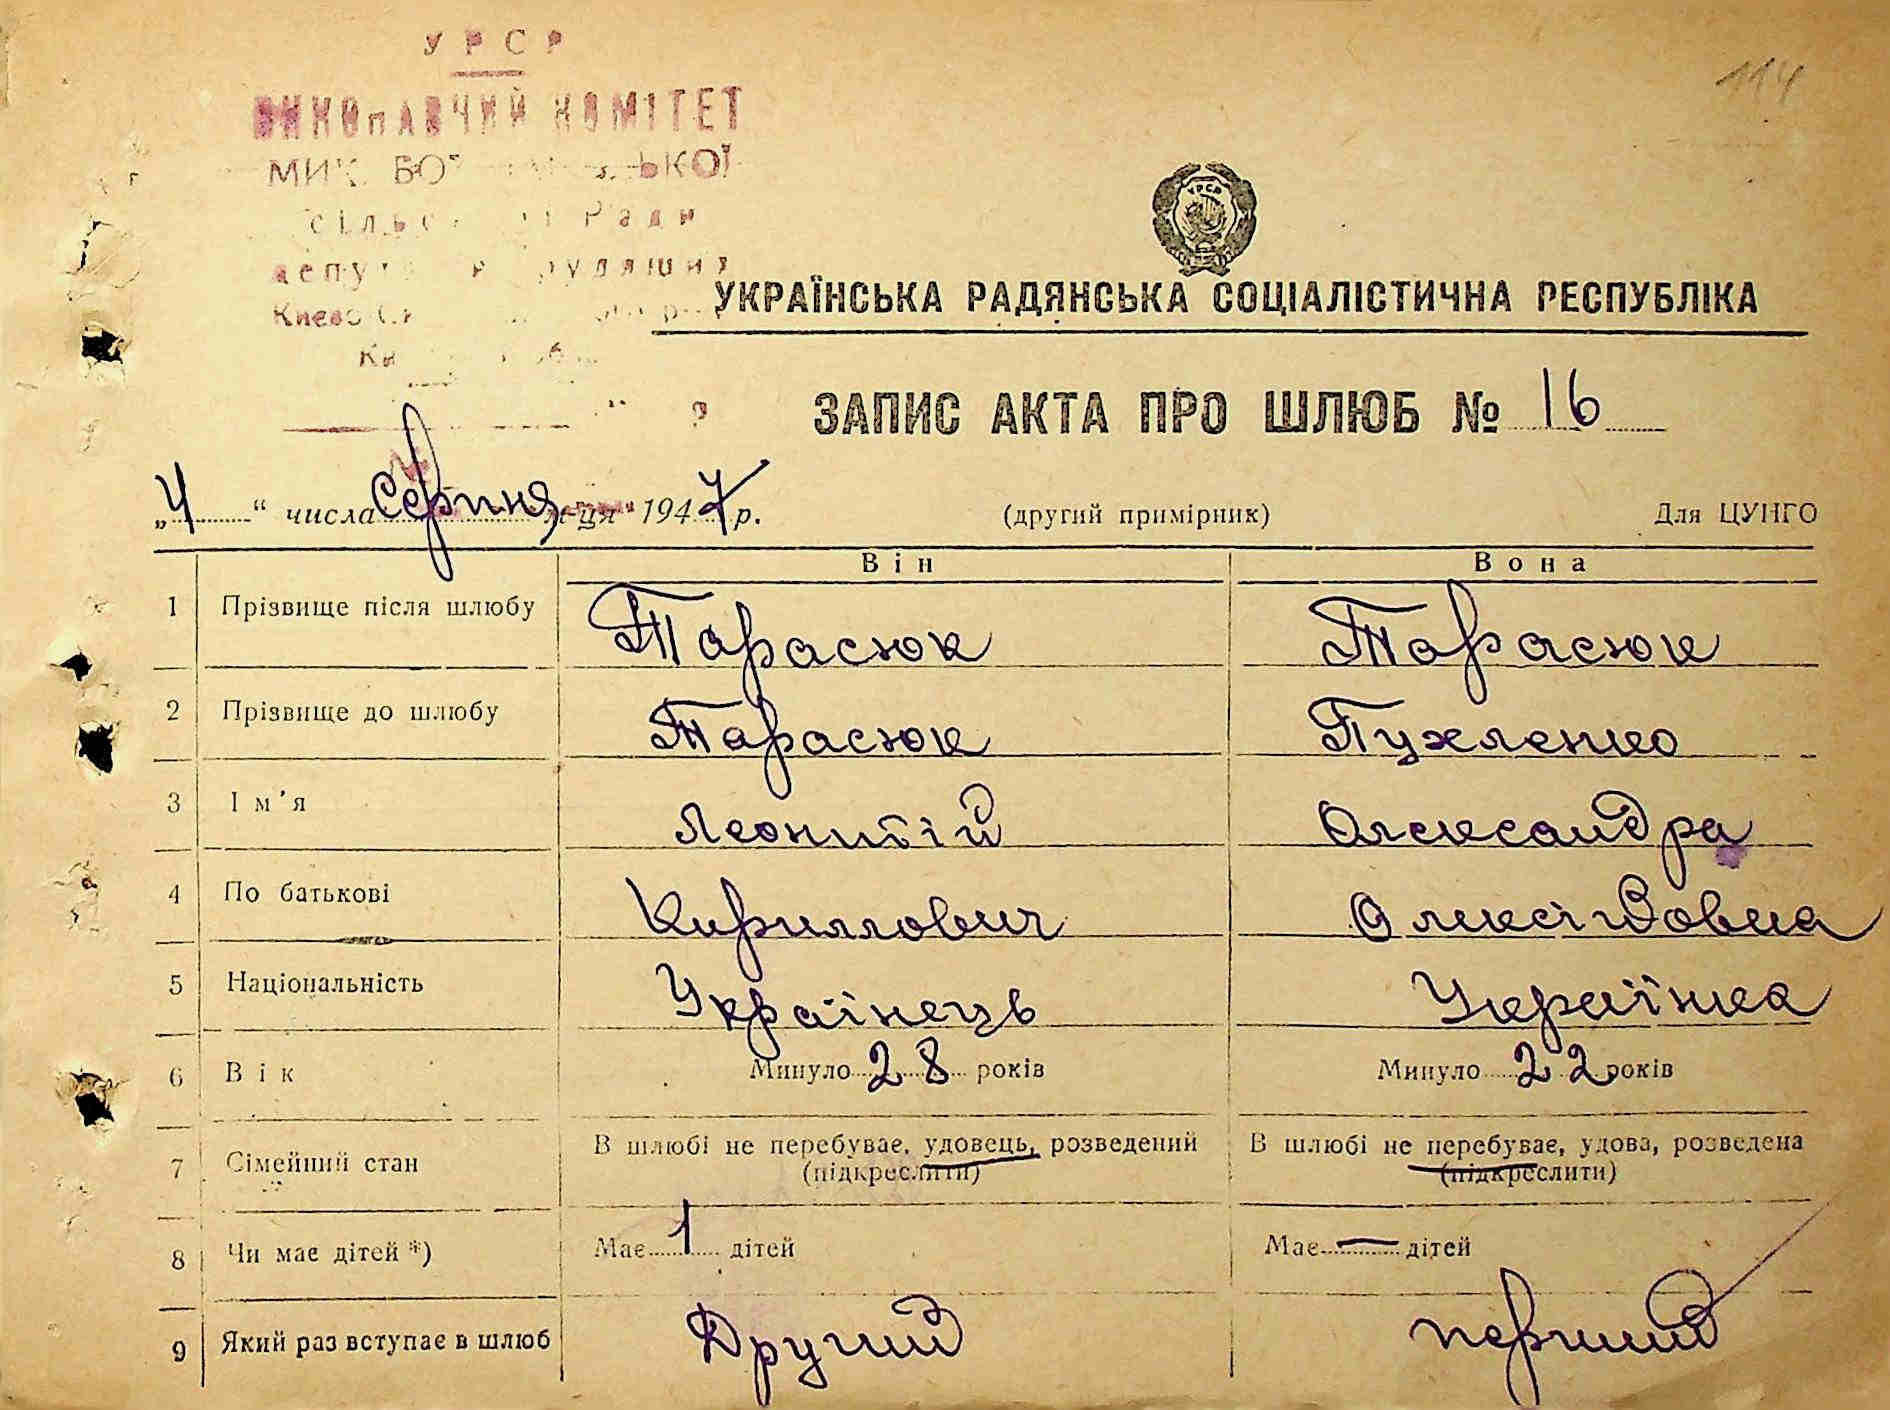 УРСР
ВИКОНАВЧИЙ КОМІТЕТ
Ради
114
УРСР
УКРАЇНСЬКА РАДЯНСЬКА СОЦІАЛІСТИЧНА РЕСПУБЛІКА
ЗАПИС АКТА ПРО ШЛЮБ № 16
„4“ числа Серпня м-ця 1947 р. (другий примірник) Для ЦУНГО
Він Вона
1 Прізвище після шлюбу Тарасюк Тарасюк
2 Прізвище до шлюбу Тарасюк Пухленко
3 Ім'я Леонтій Олександра
4 По батькові Кириллович Олексіівовна
5 Національність Українець Українка
6 Вік Минуло 28 років Минуло 22 років
7 Сімейний стан В шлюбі не перебуває, удовець, розведений В шлюбі не перебуває, удова, розведена
(підкреслити) (підкреслити)
8 Чи має дітей *) Має 1 дітей Має — дітей
9 Який раз вступає в шлюб Другий перший